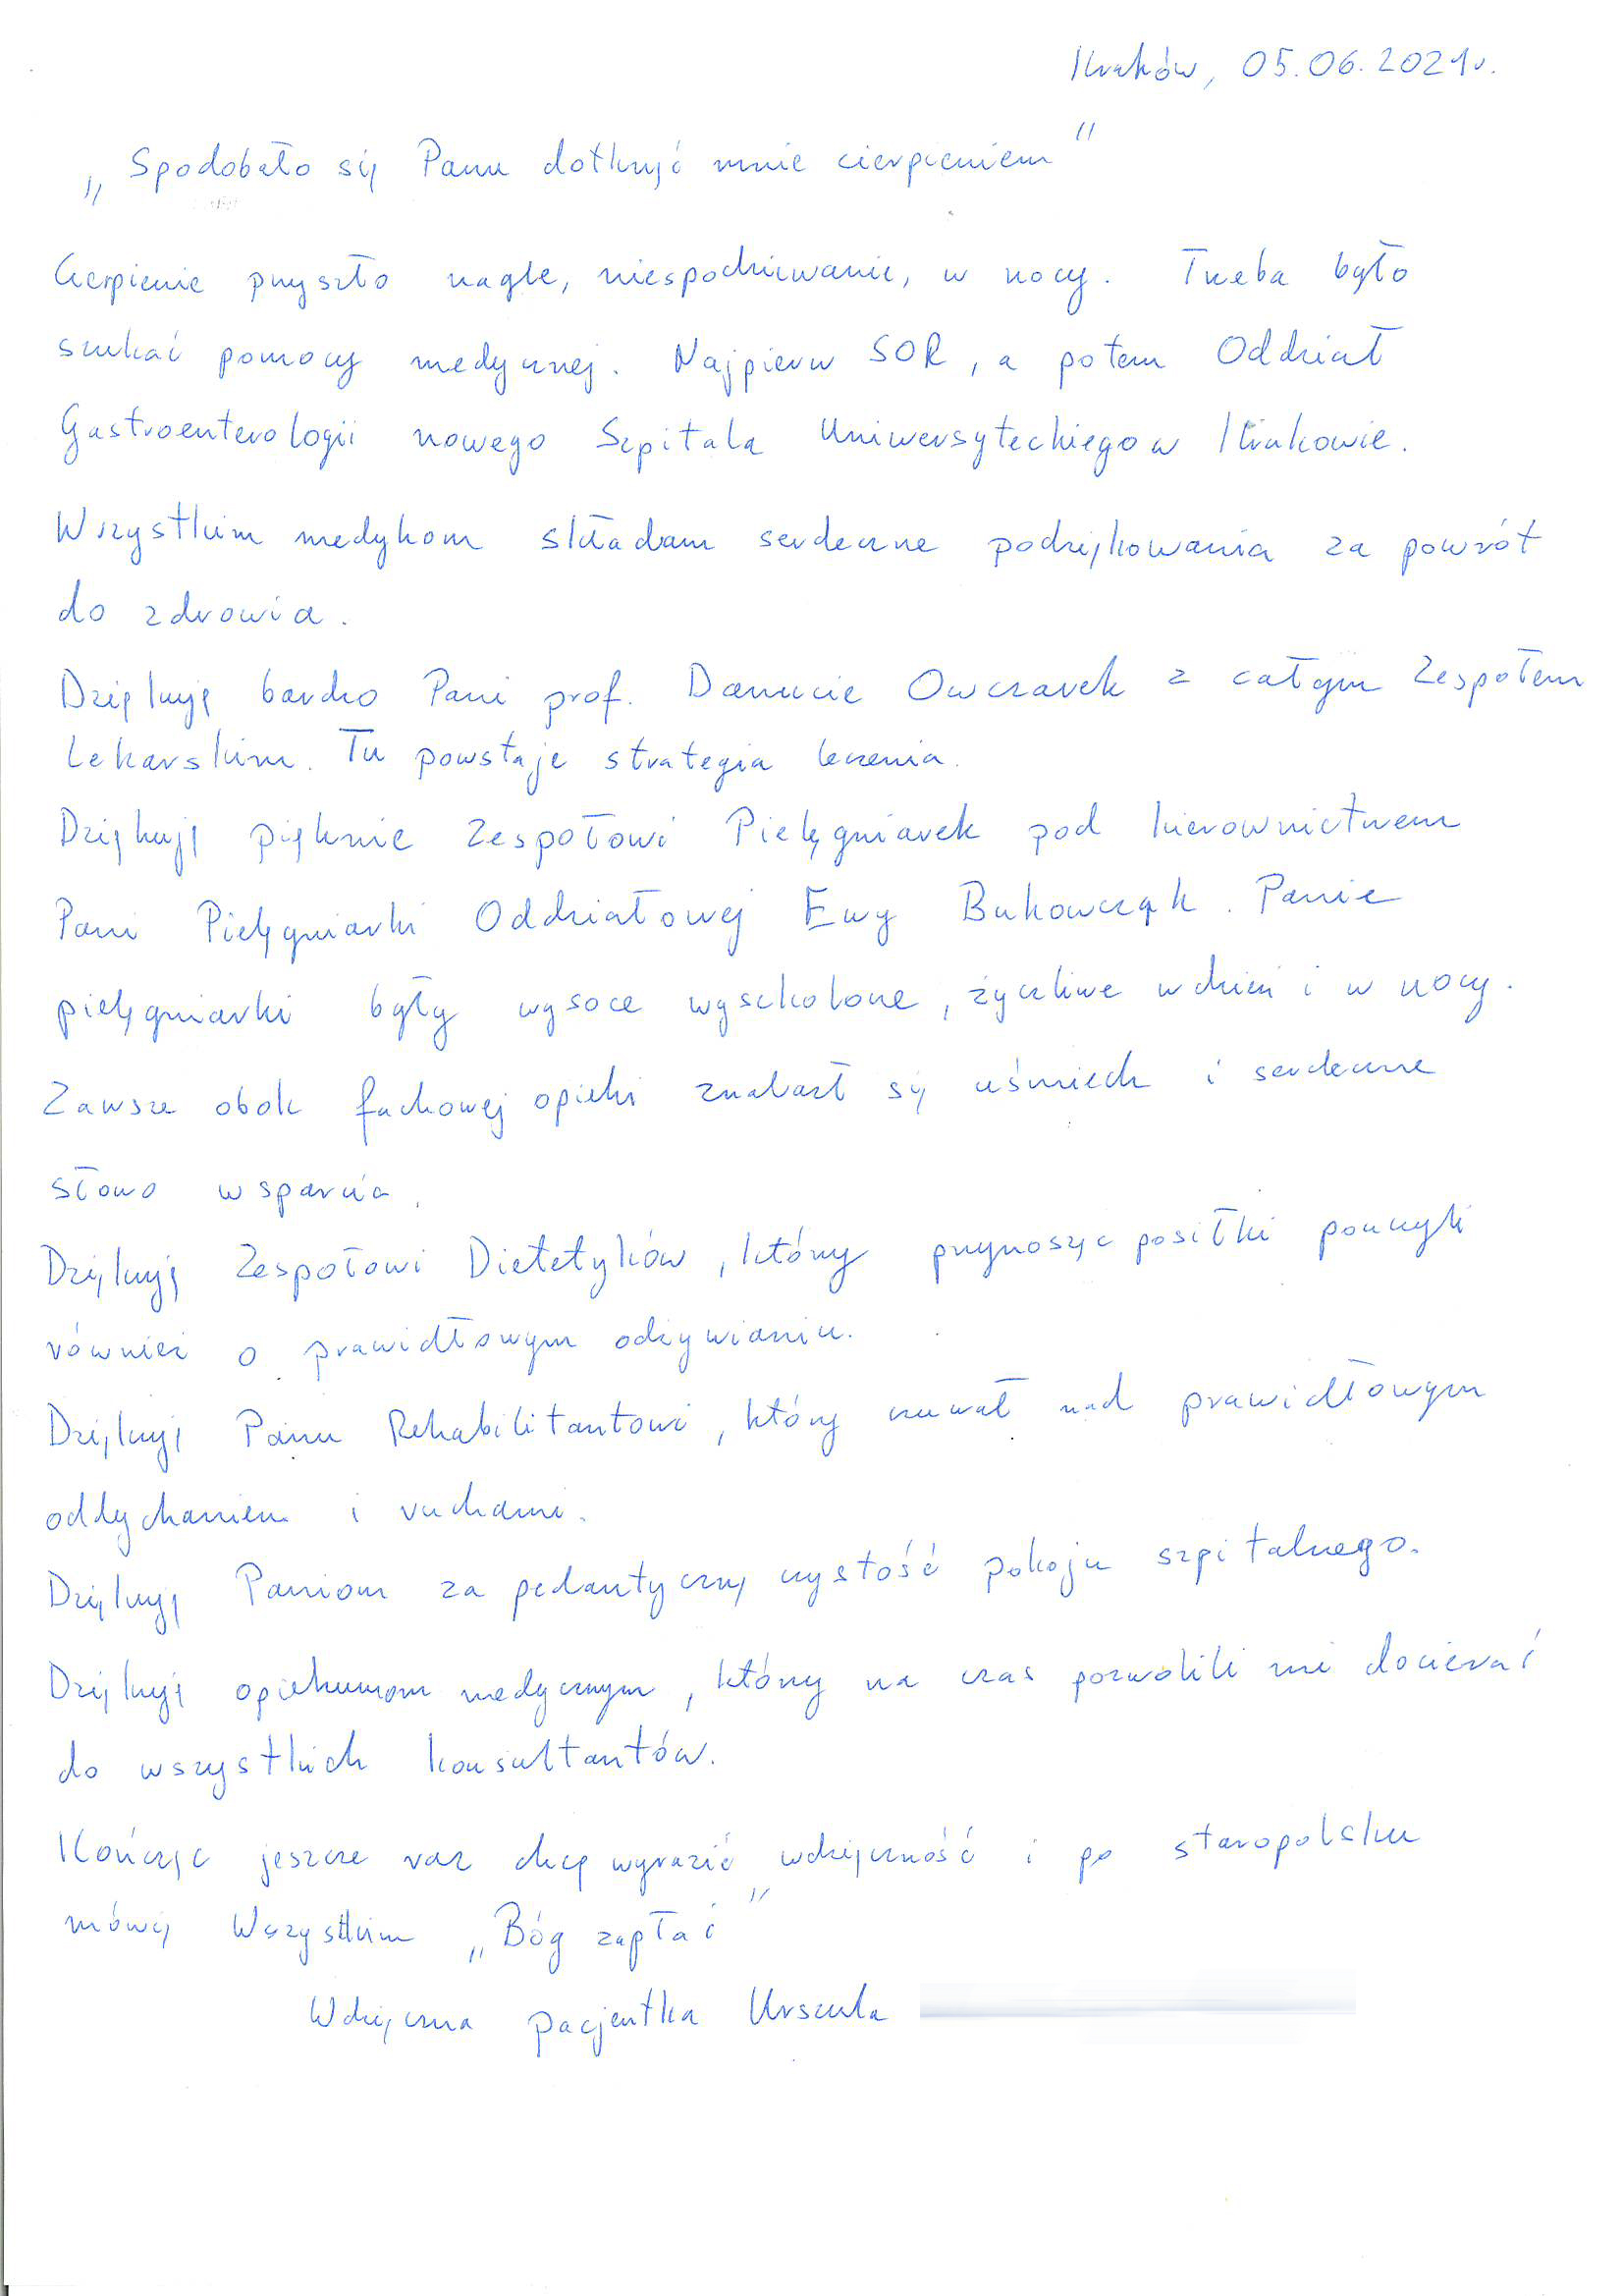 Kraków, 05.06.2021r.
„Spodobało się Panu dotknąć mnie cierpieniem"
Cierpienie przyszło nagle, niespodziewanie, w nocy. Trzeba było
szukać pomocy medycznej. Najpierw SOR, a potem Oddział
Gastroenterologii nowego Szpitala Uniwersyteckiego w Krakowie.
Wszystkim medykom składam serdeczne podziękowania za powrót
do zdrowia.
Dziękuję bardzo Pani prof. Danucie Owczarek z całym Zespołem
Lekarskim. Tu powstaje strategia leczenia.
Dziękuję pięknie Zespołowi Pielęgniarek pod kierownictwem
Pani Pielęgniarki Oddziałowej Ewy Bukowczak. Panie
pielęgniarki były wysoce wyszkolone, życzliwe w dzień i w nocy.
Zawsze obok fachowej opieki znalazł się uśmiech i serdeczne
słowo wsparcia.
Dziękuję Zespołowi Dietetyków, którzy przynosząc posiłki pouczyli
również o prawidłowym odżywianiu.
Dziękuję Panu Rehabilitantowi, który czuwał nad prawidłowym
oddychaniem i ruchami.
Dziękuję Paniom za pedantyczną czystość pokoju szpitalnego.
Dziękuję opiekunom medycznym, którzy na czas pozwolili mi docierać
do wszystkich konsultantów.
Kończąc jeszcze raz chcę wyrazić wdzięczność i po staropolsku
mówię Wszystkim „Bóg zapłać"
Wdzięczna pacjentka Urszula